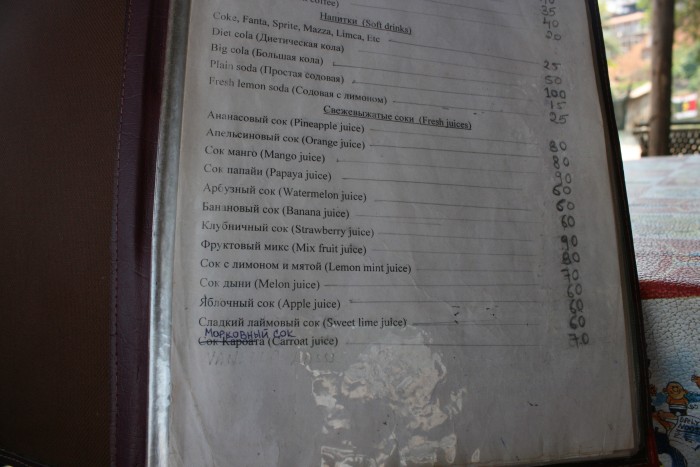 coffee)
35
40
20
Напитки (Soft drinks)
Coke, Fanta, Sprite, Mazza, Limca, Etc 25
Diet cola (Диетическая кола) 50
Big cola (Большая кола) 100
Plain soda (Простая содовая) 15
Fresh lemon soda (Содовая с лимоном) 25
Свежевыжатые соки (Fresh juices)
Ананасовый сок (Pineapple juice) 80
Апельсиновый сок (Orange juice) 80
Сок манго (Mango juice) 90
Сок папайи (Papaya juice) 60
Арбузный сок (Watermelon juice) 60
Банановый сок (Banana juice) 60
Клубничный сок (Strawberry juice) 90
Фруктовый микс (Mix fruit juice) 80
Сок с лимоном и мятой (Lemon mint juice) 70
Сок дыни (Melon juice) 60
Яблочный сок (Apple juice) 60
Сладкий лаймовый сок (Sweet lime juice) 60
МОРКОВНЫЙ СОК
Сок Кароата (Carroat juice) 70